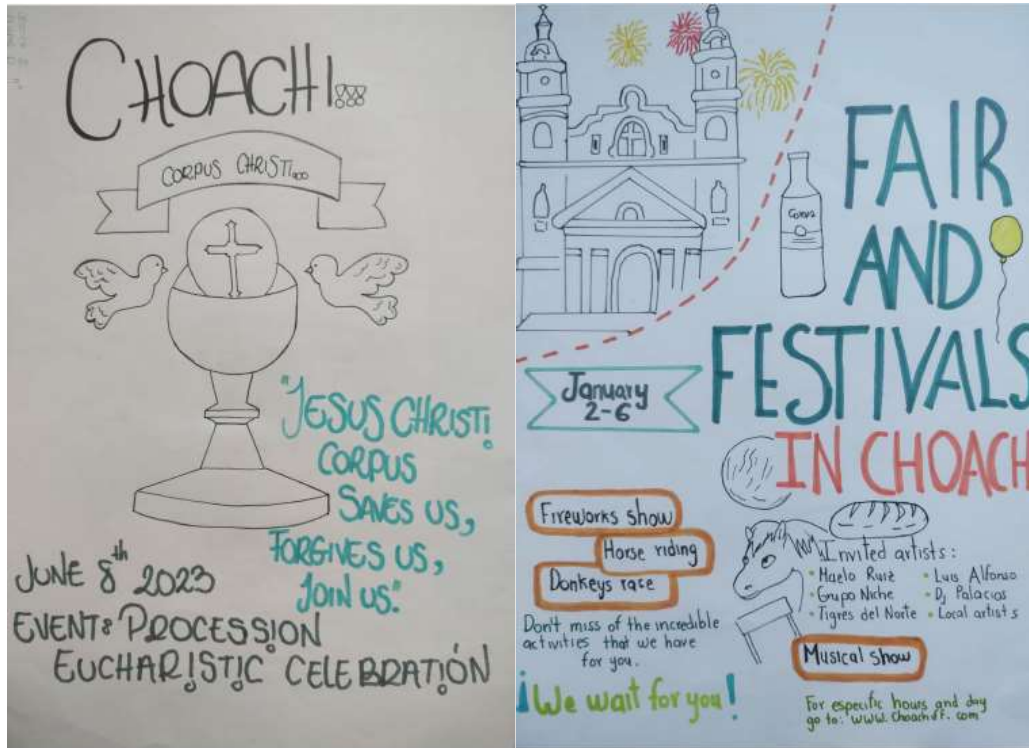 CHOACHI...!!!
CORPUS CHRISTI...
"JESUS CHRIST!
CORPUS
SAVES US,
FORGIVES US,
JOIN US."
JUNE 8th 2023
EVENT: PROCESSION
EUCHARISTIC CELEBRATIÓN
FAIR
AND
FESTIVALS
IN CHOACH
January
2-6
Fireworks show
Horse riding
Donkeys rase
Don't miss of the incredible
activities that we have
for you.
¡We wait for you!
Invited artists:
• Maelo Ruiz
• Grupo Niche
• Tigres del Norte
• Luis Alfonso
• Dj Palacios
• Local artists
Musical show
For especific hours and day
go to: www.Choachiff.com